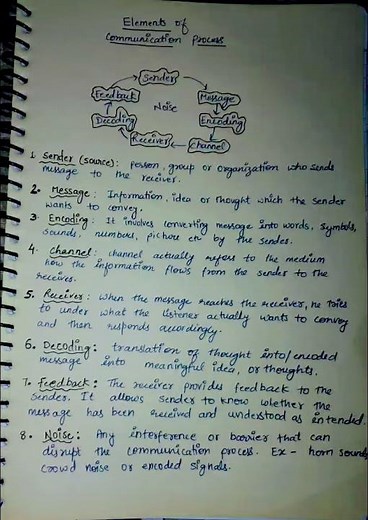 Elements of
Communication Process
Sender
Feedback
Message
Noise
Decoding
Encoding
Receiver
Channel
1. Sender (source): person, group or organization who sends
message to the receiver.
2. Message: Information, idea or thought which the sender
wants to convey.
3. Encoding: It involves converting message into words, symbols,
sounds, numbers, picture etc by the sender.
4. Channel: channel actually refers to the medium
how the information flows from the sender to the
receiver.
5. Receiver: When the message reaches the receiver, he tries
to under what the listener actually wants to convey
and then responds accordingly.
6. Decoding: translation of thought into/encoded
message into meaningful idea, or thoughts.
7. Feedback: The receiver provides feedback to the
sender. It allows sender to know whether the
message has been received and understood as intended.
8. Noise: Any interference or barrier that can
disrupt the communication process. Ex - horn sound,
crowd noise or encoded signals.